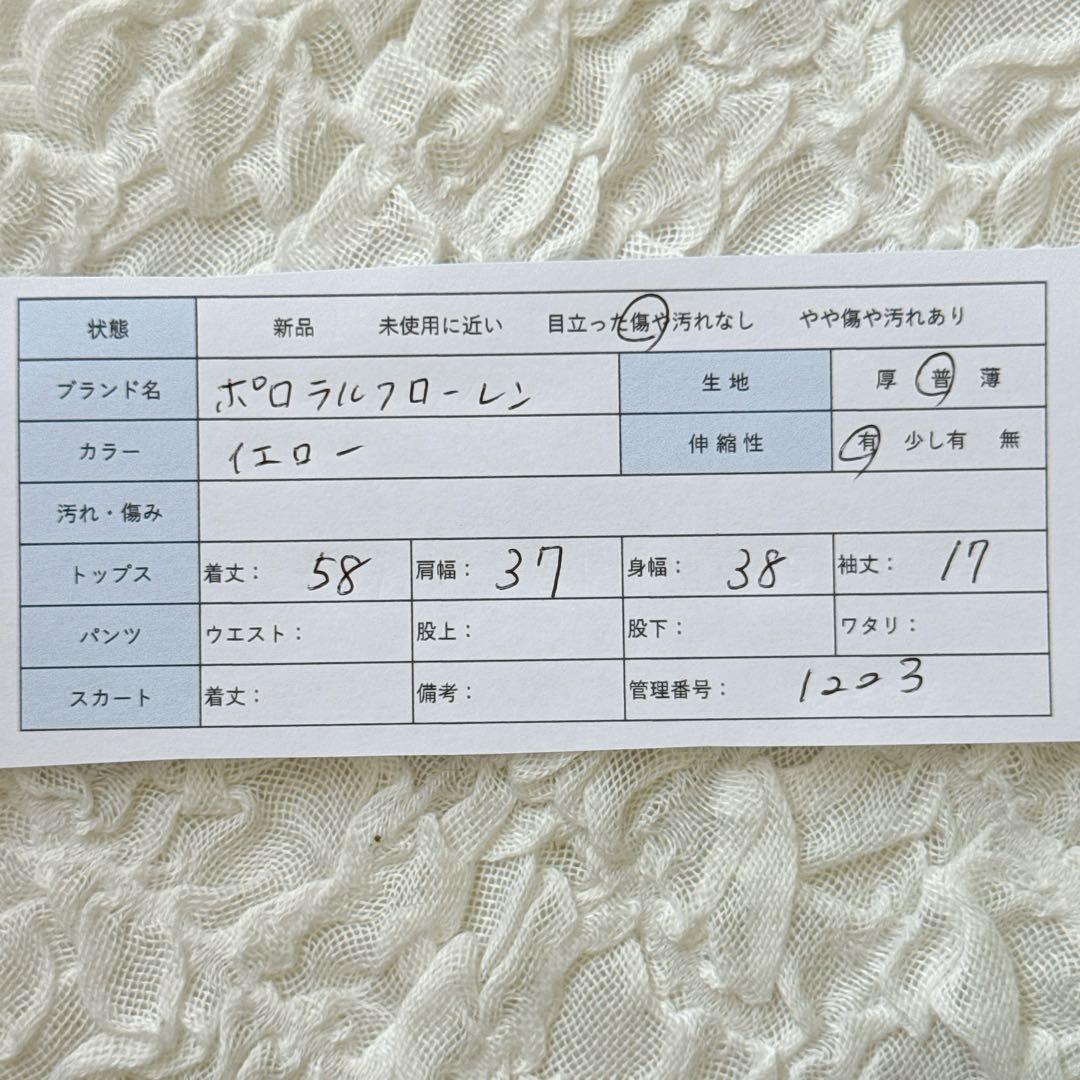 状態 新品 未使用に近い 目立った傷や汚れなし やや傷や汚れあり
ブランド名 ポロラルフローレン 生地 厚 普 薄
カラー イエロー 伸縮性 有 少し有 無
汚れ・傷み
トップス 着丈： 58 肩幅： 37 身幅： 38 袖丈： 17
パンツ ウエスト： 股上： 股下： ワタリ：
スカート 着丈： 備考： 管理番号： 1203